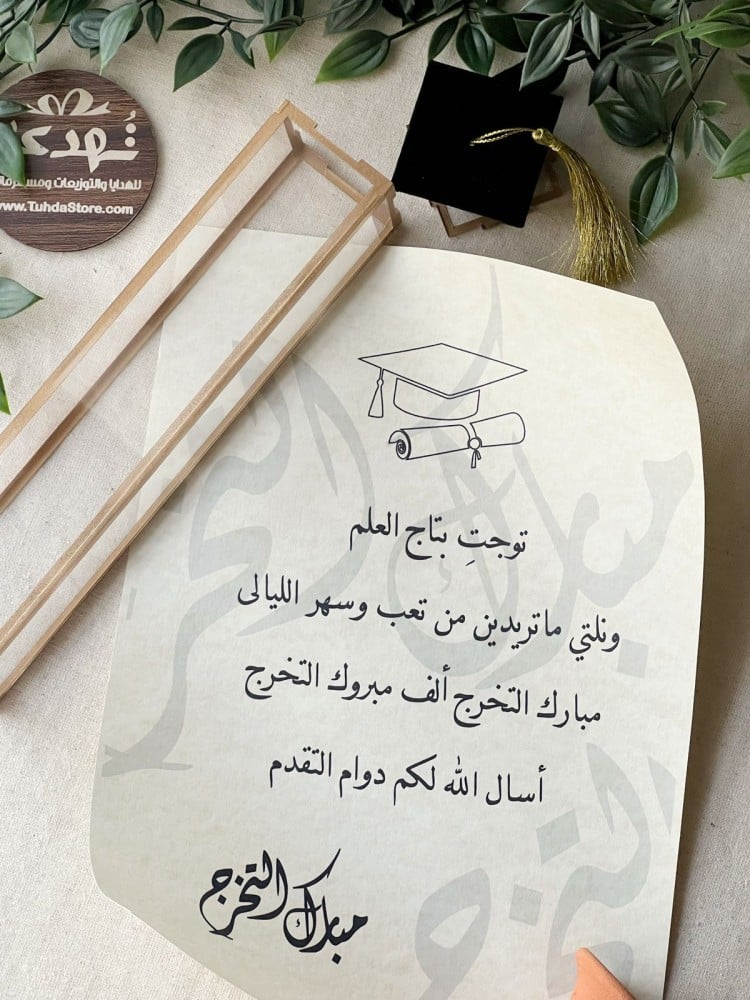 تُهدى
للهدايا والتوزيعات ومس
www.TuhdaStore.com
توجتِ بتاج العلم
ونلتي ماتريدين من تعب وسهر الليالى
مبارك التخرج ألف مبروك التخرج
أسال الله لكم دوام التقدم
مبارك التخرج
مبارك التخرج
التخرج